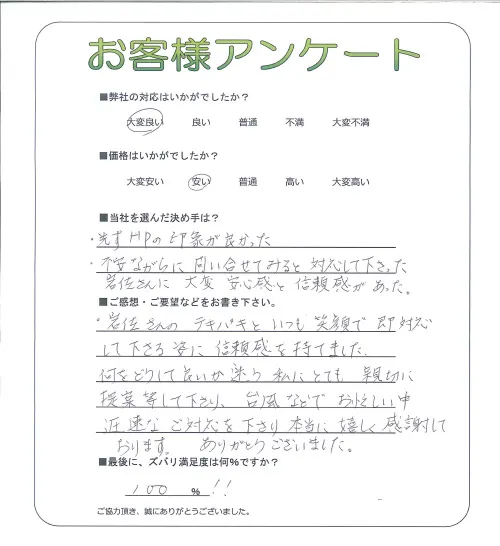 お客様アンケート
■弊社の対応はいかがでしたか？
大変良い 良い 普通 不満 大変不満
■価格はいかがでしたか？
大変安い 安い 普通 高い 大変高い
■当社を選んだ決め手は？
・先ずHPの印象が良かった
・不安ながらに問い合せてみると対応して下さった
岩佐さんに大変安心感と信頼感があった。
■ご感想・ご要望などをお書き下さい。
・岩佐さんのテキパキといつも笑顔で即対応
して下さる姿に信頼感を持てました。
何をどうして良いか迷う私にとても親切に
提案等して下さり、台風などでお忙しい中
迅速なご対応を下さり本当に嬉しく感謝して
おります。ありがとうございました。
■最後に、ズバリ満足度は何％ですか？
100 ％ !!
ご協力頂き、誠にありがとうございました。